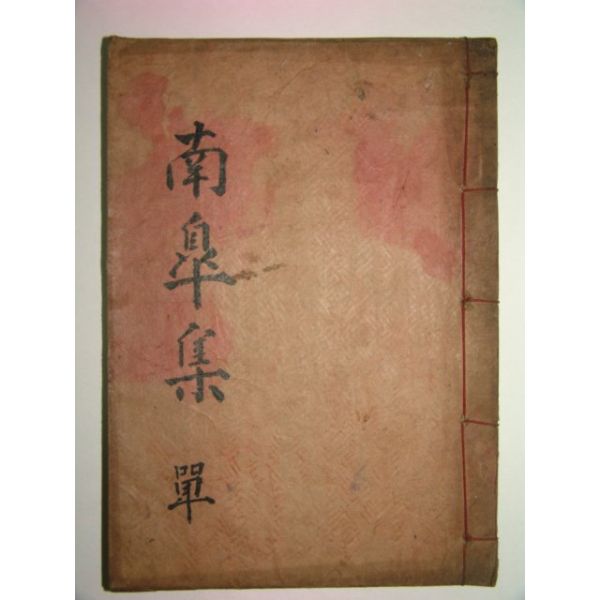 南皐集 單